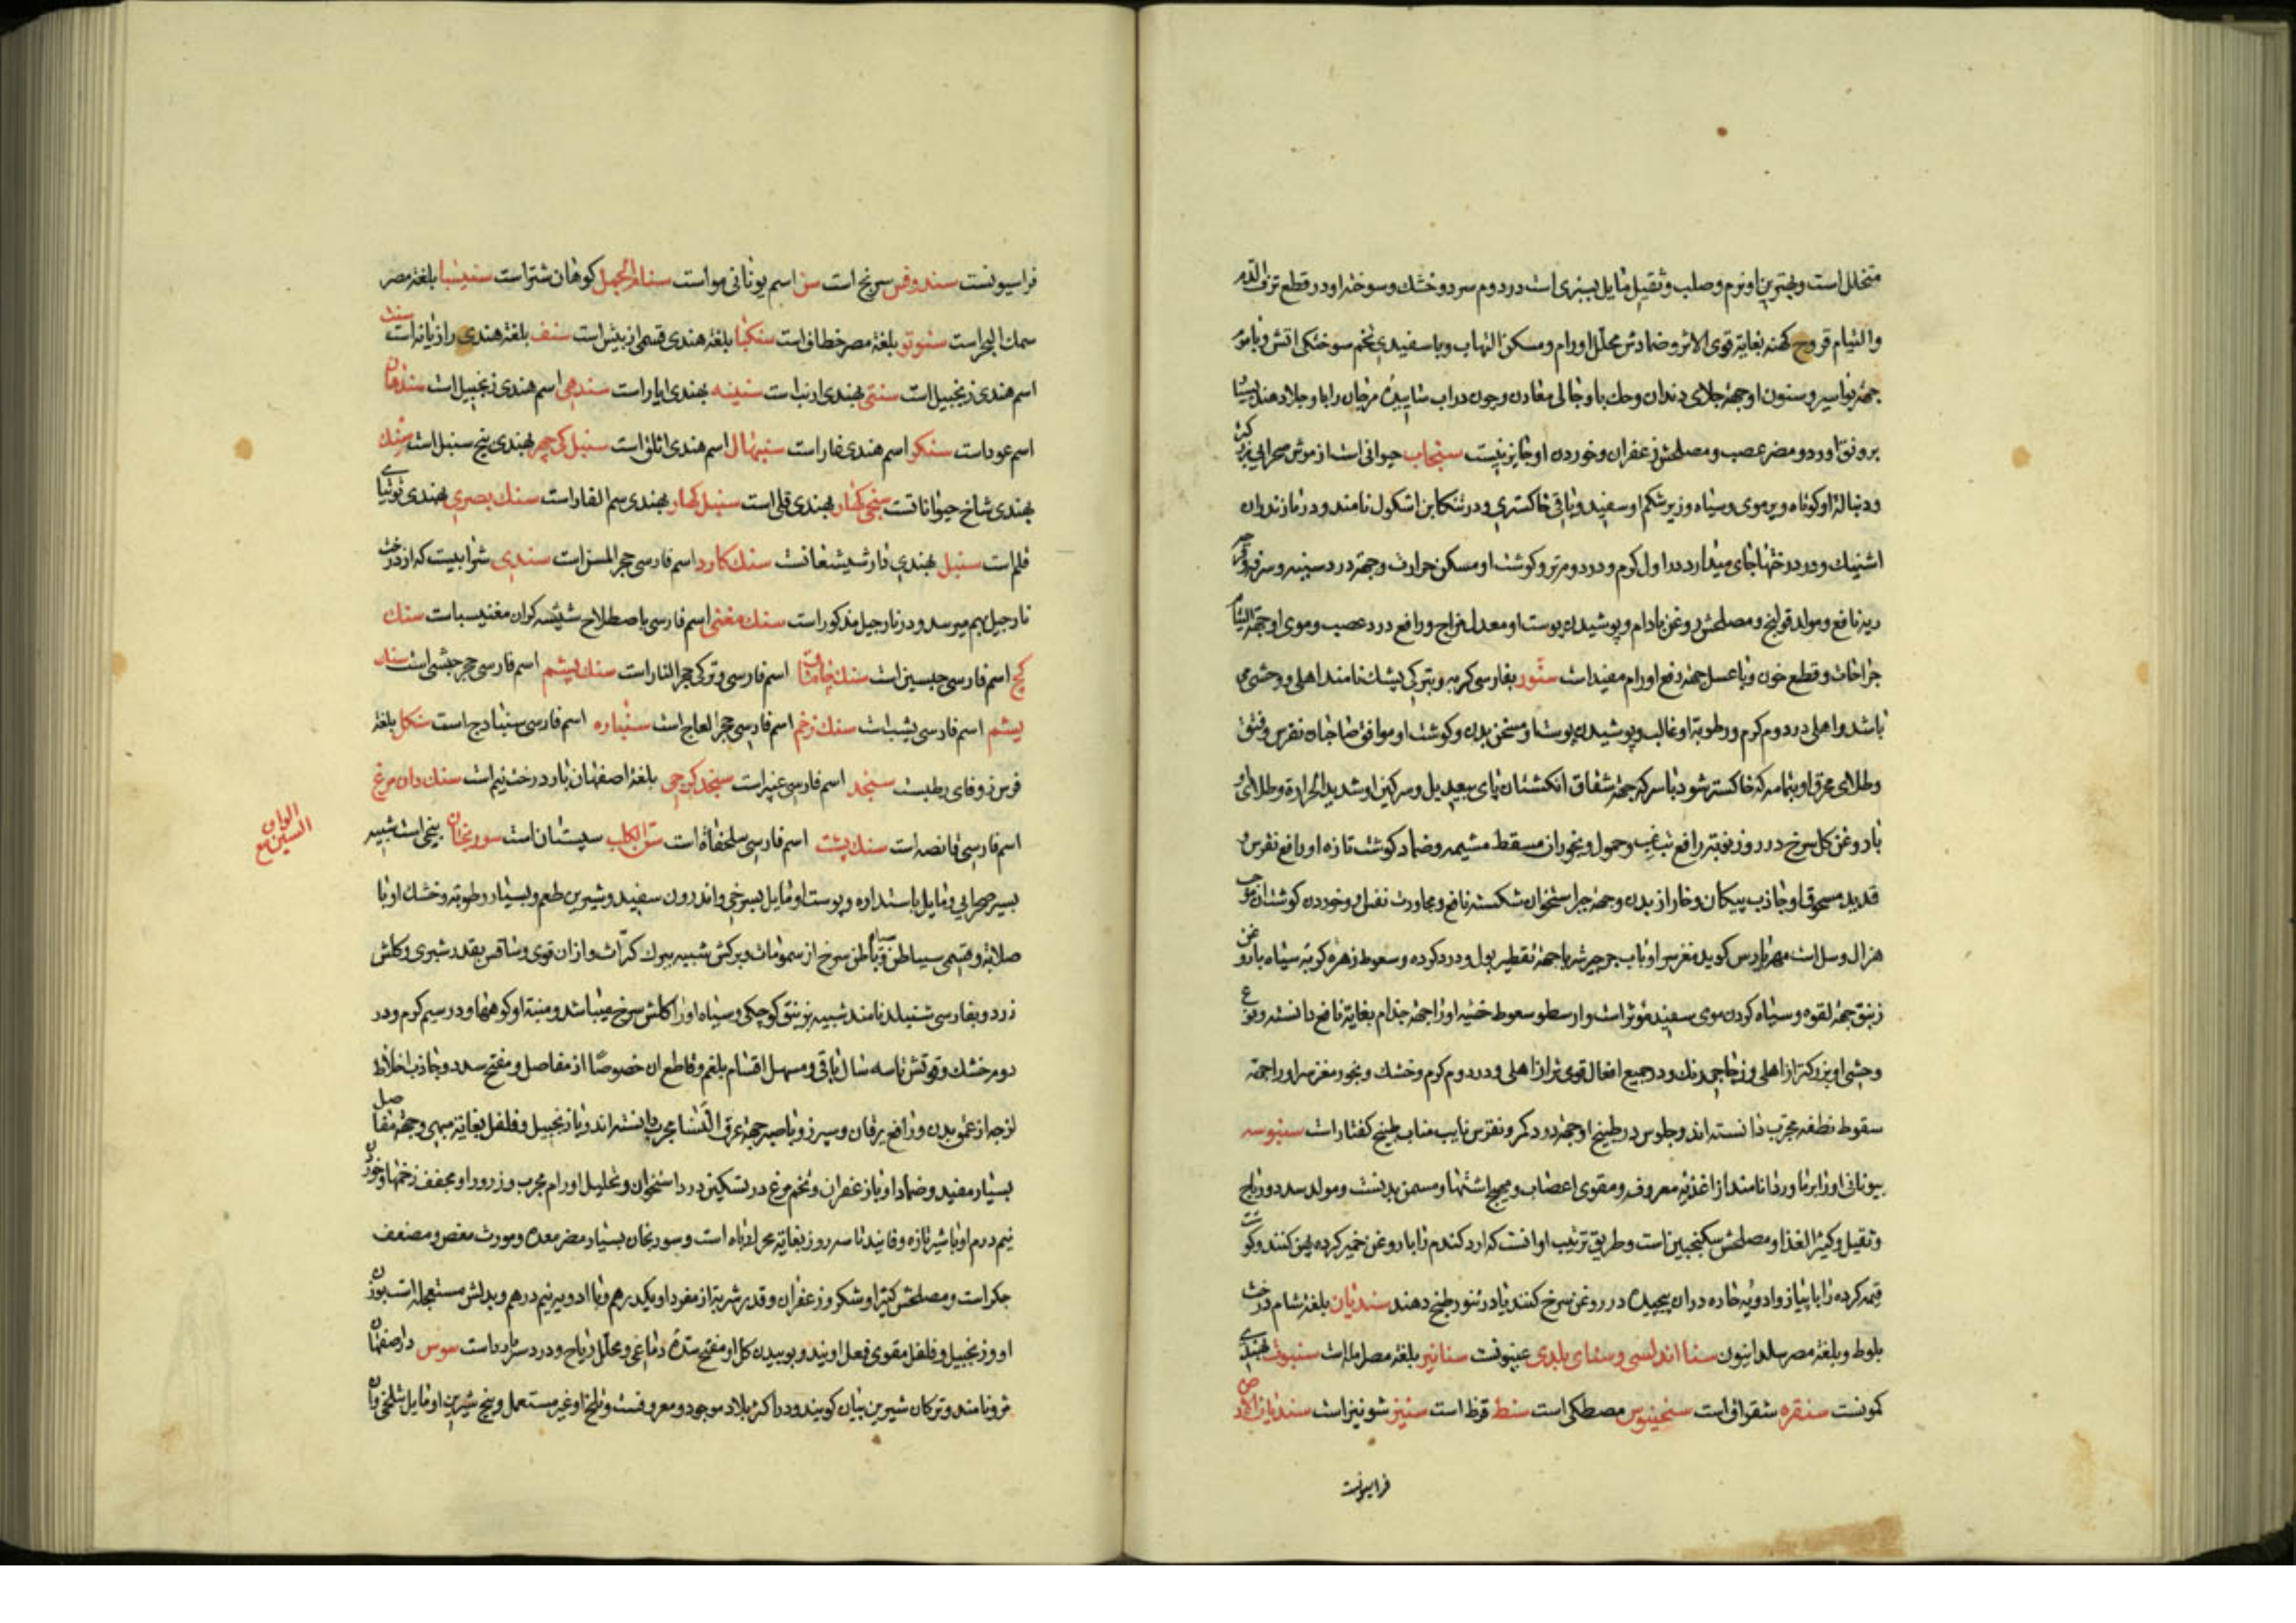 متخلل است و بهترین او نرم و صلب و ثقیل مایل بسبزی است در دوم سرد و خشک و سوختهٔ او در قطع نزف الدم
والتیام قروح کهنه بغایة قوی الاثر و ضمادش محلل اورام و مسکن التهاب و با سفیدی تخم سوختکی اتش و با موم
جهة بواسیر و سنون او جهة جلای دندان و حک با و جالی معادن و چون در اب سائیده مرجان را با و جلا دهند بسیار
برونق اورد و مضر عصب و مصلحش زعفران و خوردن او جایز نیست سنجاب حیوانی است از موش صحرایی بزرکتر
و دنبالهٔ او کوتاه و پر موی و سیاه و زیر شکم او سفید و باقی خاکستری و در تنکابن اشکول نامند و در مازندران
اشنیک و در درختها جای میدارد در اول کرم و در دوم تر و کوشت او مسکن حرارت و جهة درد سینه و سرفه و قرحه
ریه نافع و مولد قولنج و مصلحش روغن بادام و پوشیدن پوست او معدل مزاج و رافع درد عصب و موی او جهة التیام
جراحات و قطع خون و با عسل جهة رفع اورام مفید است سنّور بفارسی کربه و بترکی پشک نامند اهلی و وحشی می
باشد و اهلی در دوم کرم و رطوبة او غالب و پوشیدن پوست او مسخن بدن و کوشت او موافق صاحبان نقرس و فتق
و طلای محرق او بتمامه که خاکستر شود با سرکه جهة شقاق انکشتان پای بیعدیل و سرکین او شدید الحرارة و طلای او
با روغن کل سرخ در روز نوبة رافع تب غب و حمول و بخور ان مسقط مشیمه و ضماد کوشت تازه او رافع نقرس و
قدید مسحوق او جاذب پیکان و خار از بدن و جهة جبر استخوان شکسته نافع و مجاورت نفس او و خوردن کوشت ان موجب
هزال و سل است مهراریس کوید مغز سر او با اب جرجیر شربا جهة تقطیر بول و درد کرده و سعوط زهره کربه سیاه با روغن
زنبق جهة لقوه و سیاه کردن موی سفید مؤثر است و ارسطو سعوط خصیه او را جهة جذام بغایة نافع دانسته و نوع
وحشی او بزرکتر از اهلی و زجاجی رنک و در جمیع افعال قوی تر از اهلی و در دوم کرم و خشک و بخور مغز سر او را جهة
سقوط نطفه مجرب دانسته اند و جلوس در طبیخ او جهة درد کمر و نقرس نایب مناب طبیخ کفتار است سنبوسه
بیونانی اوزابرنا و ردانا نامند از اغذیه معروفه و مقوی اعضاب و مهیج اشتها و مسمن بدنست و مولد سدد و ریاح
و ثقیل و کثیر الغذا و مصلحش سکنجبین است و طریق ترتیب او انست که ارد کندم را با روغن خمیر کرده پهن کنند و کوشت
قیمه کرده را با پیاز و ادویه حاره در ان پیچیده در روغن سرخ کنند یا در تنور طبخ دهند سندیان بلغة شام درخت
بلوط و بلغة مصر سلدانیون سنا اندلسی و سنای بلدی عینونست سنانیر بلغة مصر املیا است سنبوت بهندی
کمونست سنقره شقراق است سنجینوس مصطکی است سنط قرظ است سنیز شونیز است سندیان الارض
فراسیونست
فراسیونست سندوقس سرنج است سن اسم یونانی مو است سنام الجمل کوهان شتر است سنینبا بلغة مصر
سمک البحر است سنوتو بلغة مصر خطاف است سنکیا بلغة هندی قسمی از بیش است سنف بلغة هندی رازیانه است سنت
اسم هندی زنجبیل است سنتی بهندی ارنب است سنینه بهندی ایار است سندهی اسم هندی زنجبیل است سندهان
اسم عود است سنکر اسم هندی غار است سنبهال اسم هندی اثلق است سنبل کی جر بهندی بیخ سنبل است سنک
بهندی شاخ حیواناتست سنجی کهار بهندی قلی است سنبل کهار بهندی سم الفار است سنک بصری بهندی توتیای
قلم است سنبل بهندی دار شیشعانست سنک کارد اسم فارسی حجر المسن است سندی شرابیست که از درخت
نارجیل بهم میرسد و در نارجیل مذکور است سنک مغنی اسم فارسی باصطلاح شیشه کران مغنیسیا است سنک
کچ اسم فارسی جبسین است سنک چخماق اسم فارسی و ترکی حجر النار است سنک یشم اسم فارسی حجر حبشی است سنک
یشم اسم فارسی یشب است سنک زخم اسم فارسی حجر العاج است سنباره اسم فارسی سنبادج است سنکل بلغة
فرس زوفای رطبست سنجد اسم فارسی غبیرا است سنجد کرجی بلغة اصفهان بار درخت نیم است سنک دان مرغ
اسم فارسی قانصه است سنک پشت اسم فارسی سلحفاة است سن الکلب سپستان است سورنجان بیخی است شبیه
بسیر صحرایی و مایل باستداره و پوست او مایل بسرخی و اندرون سفید و شیرین طعم و بسیار رطوبة و خشک او با
صلابة و قسمی سیاه باطن و باطن سرخ از سمومات و برکش شبیه ببرک کراث و از ان قوی و ساقش بقدر شبری و کلش
زرد و بفارسی شنبلید نامند شبیه بزنبق کوچکی و سیاه او را کلش سرخ میباشد و منبت او کوهها و در سیم کرم و در
دوم خشک و قوتش تا سه سال باقی و مسهل اقسام بلغم و قاطع ان خصوصًا از مفاصل و مفتح سدد و جاذب اخلاط
لزجه از عمق بدن و رافع یرقان و سپرز و با صبر جهة عرق النسا مجرب دانسته اند و با زنجبیل و فلفل بغایة مبهی و جهة مفاصل
بسیار مفید و ضماد او با زعفران و تخم مرغ در تسکین درد استخوان و تحلیل اورام مجرب و زرور او مجفف زخمها و خوردن
نیم درم او با شیر تازه و فانید تا سه روز بغایة محرک باه است و سورنجان بسیار مضر معده و مورث مغص و مضعف
جکر است و مصلحش کتیرا و شکر و زعفران و قدر شربة از مفرد او یکدرهم و با ادویه نیم درهم و بدلش مستعجله است بوزن
او و زنجبیل و فلفل مقوی فعل اویند و بوییدن کل او مفتح سدهٔ دماغی و محلل ریاح و درد سر بارد است سوس در اصفهان
مرو نامند و ترکان شیرین بیان کویند و در اکثر بلاد موجود و معروفست و تلخ او غیر مستعمل و بیخ شیرین او مایل بتلخی و ان
الواو
السین مع